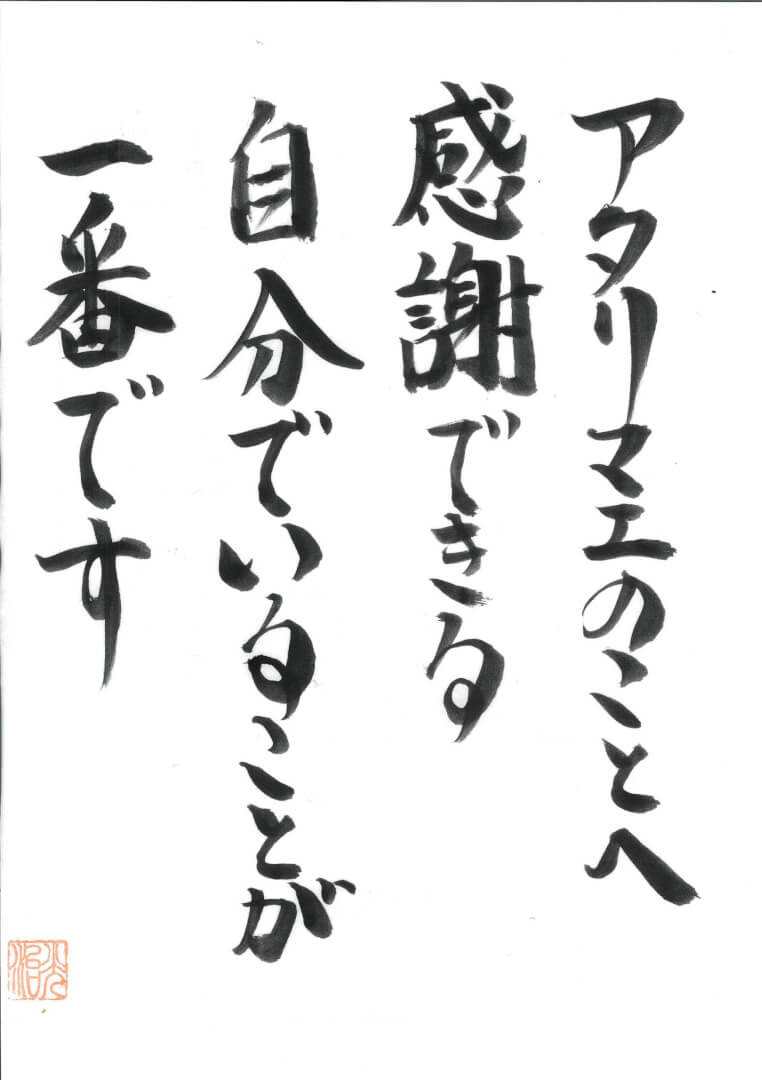 アタリマエのことへ
感謝できる
自分でいることが
一番です